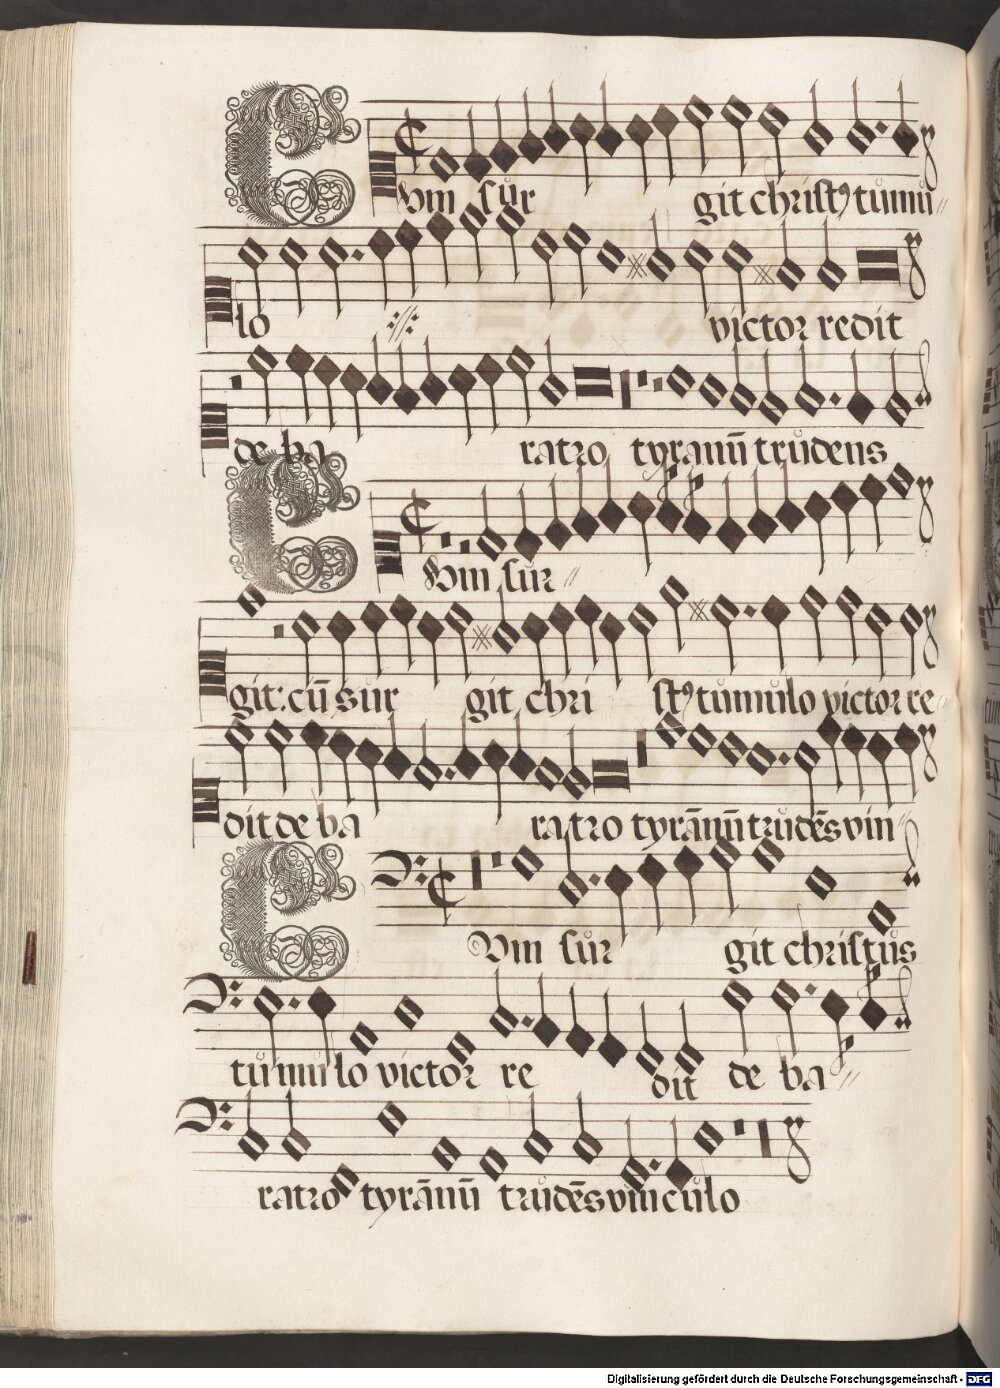 Cum sur git christꝰ tumu
lo victor redit
de ba ratro tyranū trudens
Cum sur
git: cū sur git chri stꝰ tumulo victor re
dit de ba ratro tyrānū trudēs vin
Cum sur git christus
tumulo victor re dit de ba
ratro tyrānū trudēs vinculo
Digitalisierung gefördert durch die Deutsche Forschungsgemeinschaft - DFG